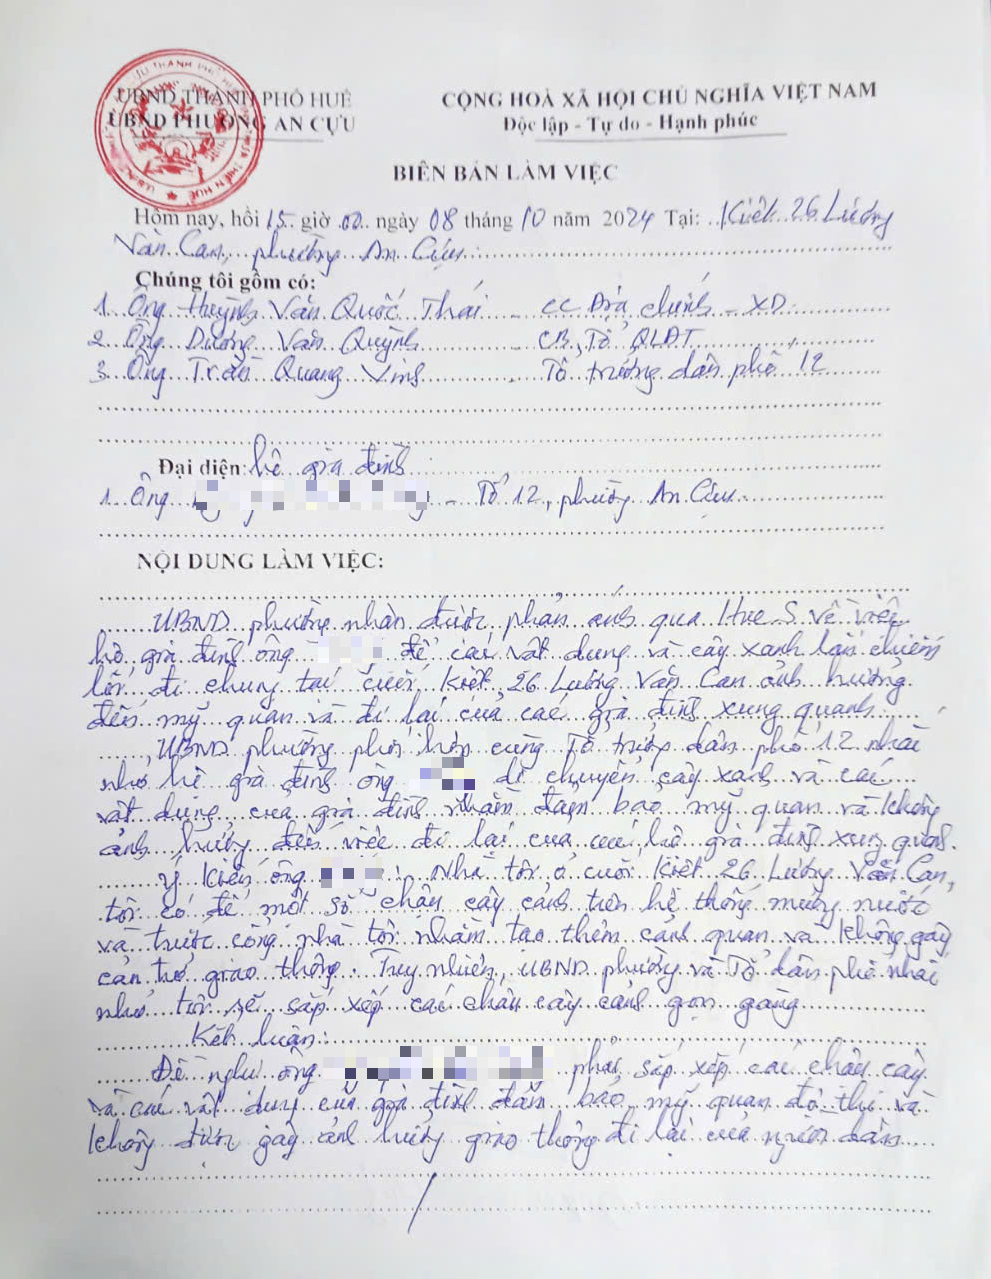 UBND THÀNH PHỐ HUẾ
CỘNG HOÀ XÃ HỘI CHỦ NGHĨA VIỆT NAM
UBND PHƯỜNG AN CỰU
Độc lập - Tự do - Hạnh phúc
BIÊN BẢN LÀM VIỆC
Hôm nay, hồi 15 giờ 00 ngày 08 tháng 10 năm 2024 Tại: Kiệt 26 Lương
Văn Can, phường An Cựu
Chúng tôi gồm có:
1. Ông Huỳnh Văn Quốc Thái - CC Địa chính - XD
2. Ông Dương Văn Quỳnh - CB, Tổ QLĐT
3. Ông Trần Quang - Tổ trưởng dân phố 12
Đại diện: hộ gia đình
1. Ông - Tổ 12, phường An Cựu
NỘI DUNG LÀM VIỆC:
UBND phường nhận được phản ánh qua Hue S về việc
hộ gia đình ông để các vật dụng và cây xanh lấn chiếm
lối đi chung tại cuối Kiệt 26 Lương Văn Can ảnh hưởng
đến mỹ quan và đi lại của các gia đình xung quanh
UBND phường phối hợp cùng Tổ trưởng dân phố 12 nhắc
nhở hộ gia đình ông di chuyển cây xanh và các
vật dụng của gia đình nhằm đảm bảo mỹ quan và không
ảnh hưởng đến việc đi lại của các hộ gia đình xung quanh.
Ý kiến ông : Nhà tôi ở cuối Kiệt 26 Lương Văn Can,
tôi có để một số chậu cây cảnh trên hệ thống mương nước
và trước cổng nhà tôi nhằm tạo thêm cảnh quan và không gây
cản trở giao thông. Tuy nhiên, UBND phường và Tổ dân phố nhắc
nhở tôi sẽ sắp xếp các chậu cây cảnh gọn gàng
Kết luận:
Đề nghị ông phải sắp xếp các chậu cây
và các vật dụng của gia đình đảm bảo mỹ quan đô thị và
không được gây ảnh hưởng giao thông đi lại của người dân